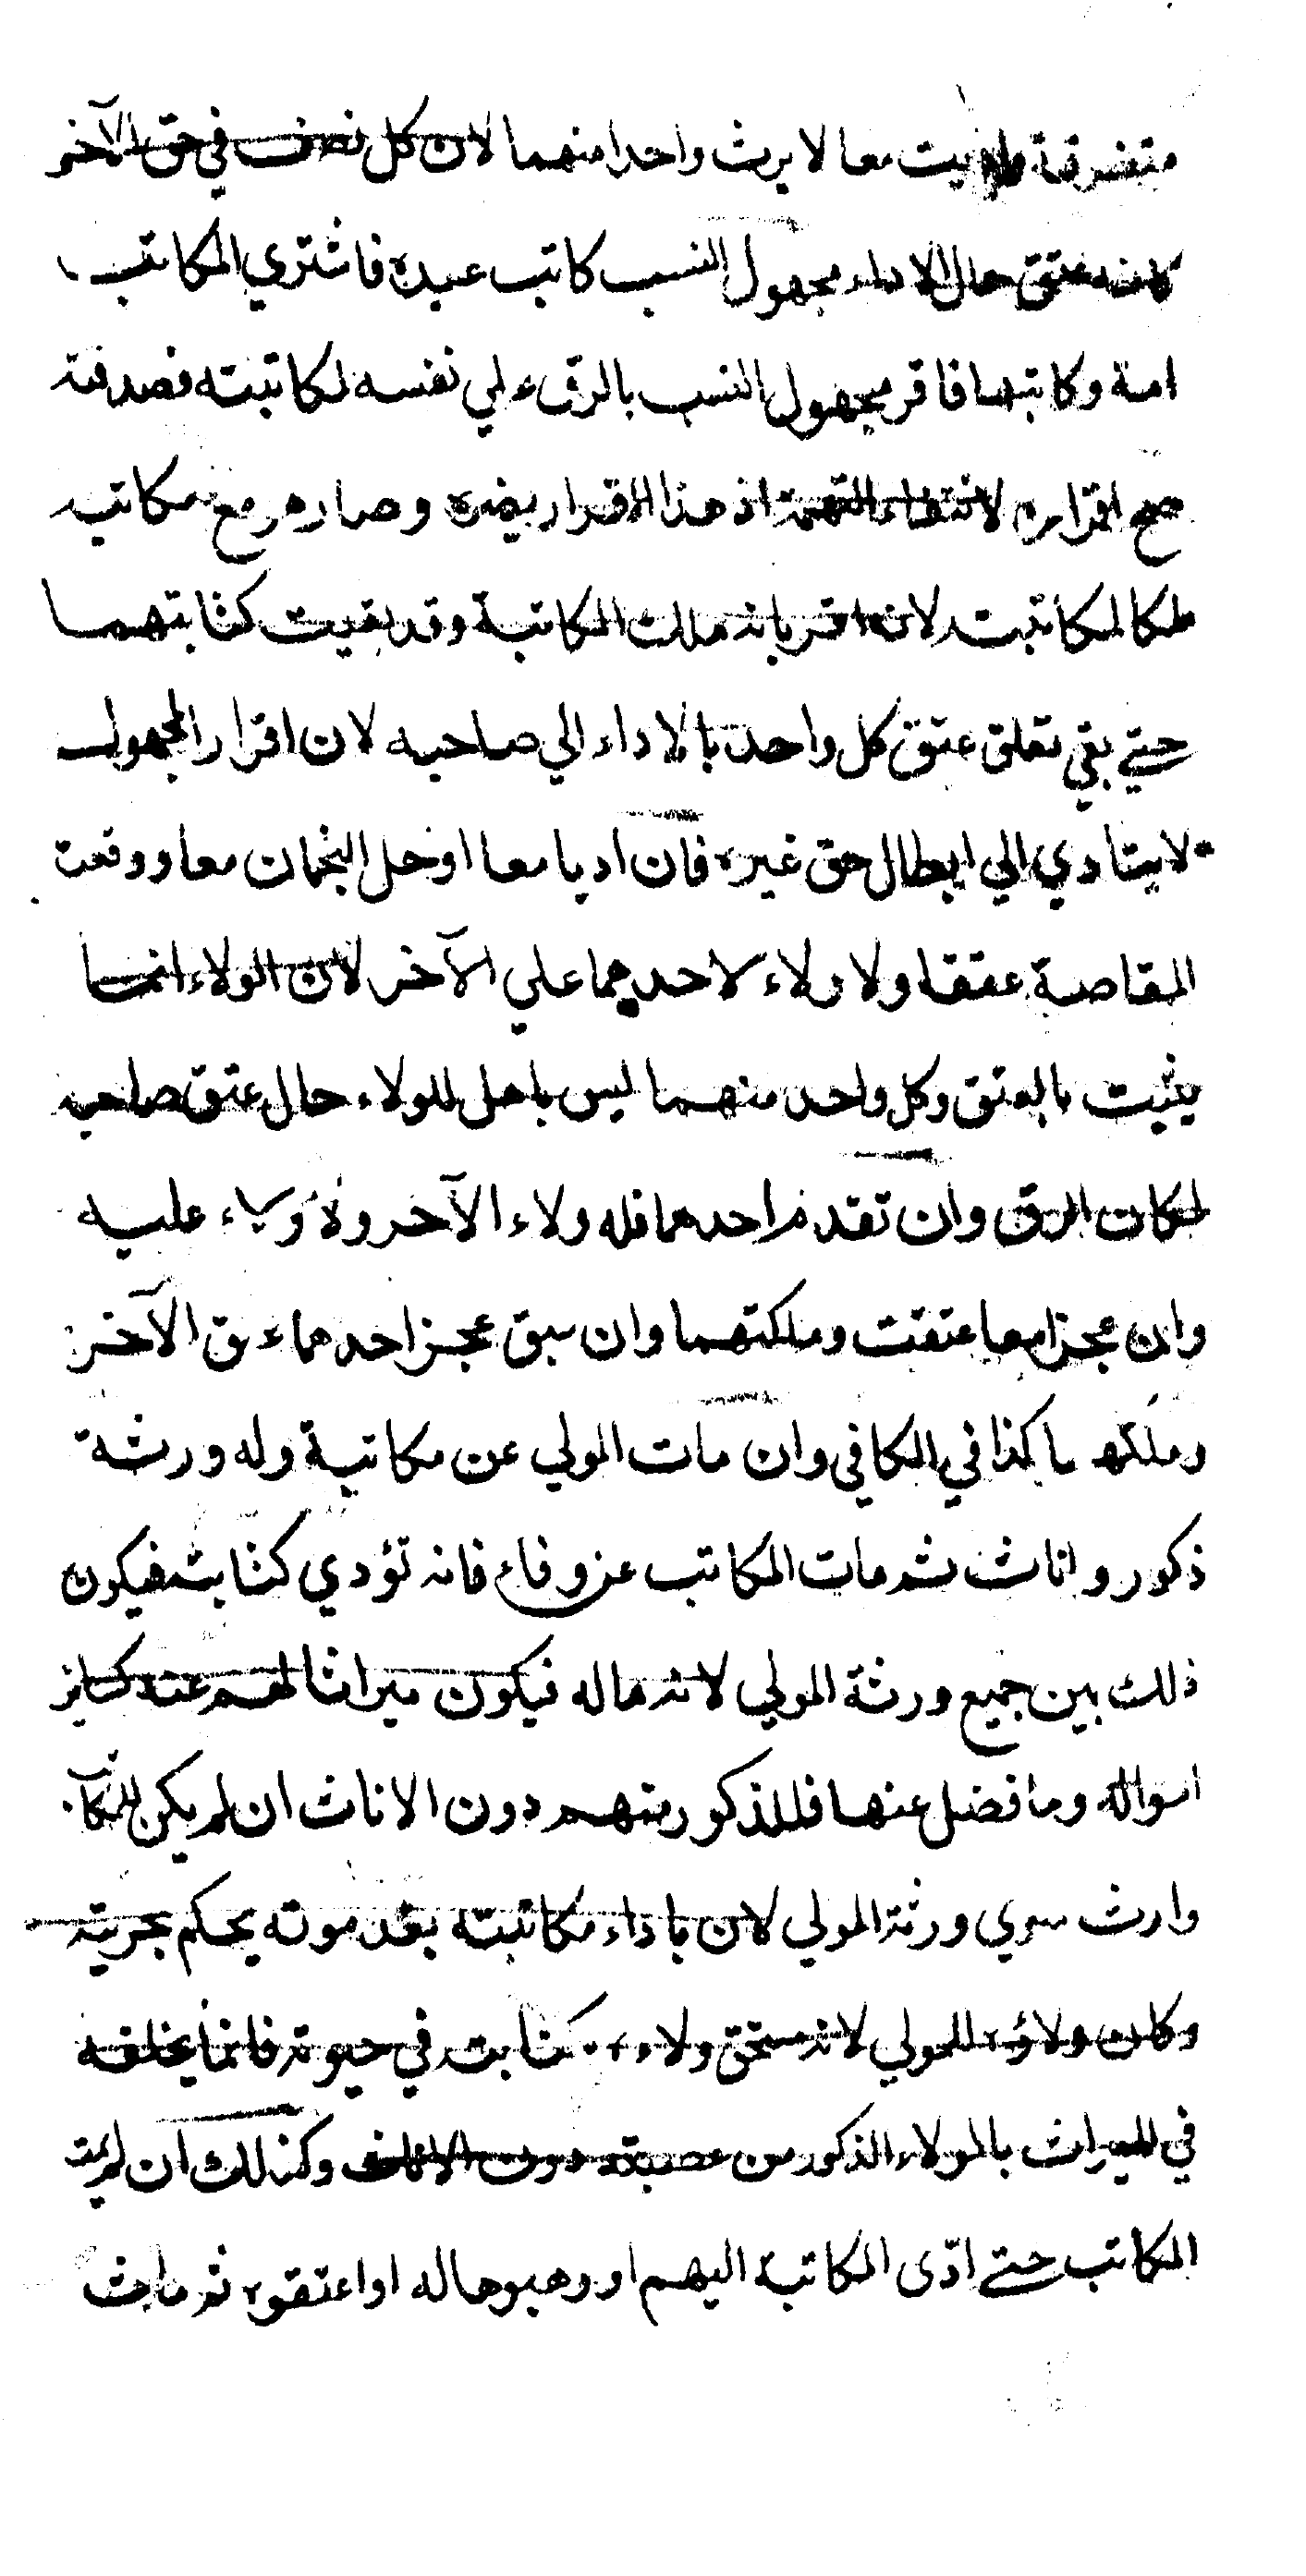 متفرقة واديت معا لا يرث واحدا منهما لان كل نصف في حق الآخر
كانه عتق حال الاداء مجهول النسب كاتب عبده فاشتري المكاتب
امة وكاتبها فاقر مجهول النسب بالرق علي نفسه لمكاتبته فصدقته
صح اقراره لانتفاء التهمة اذ هذا الاقرار يضره وصار هو مع مكاتبه
ملكا لمكاتبته لانه اقر بانه ملك المكاتبة وقد بقيت كتابتهما
حتي بقي تعلق عتق كل واحد بالاداء الي صاحبه لان اقرار المجهول
لا يتادي الي ابطال حق غيره فان اديا معا او حل النجمان معا ووقعت
المقاصة عتقا ولا ولاء لاحدهما علي الآخر لان الولاء انما
يثبت بالعتق وكل واحد منهما ليس باهل للولاء حال عتق صاحبه
لمكان الرق وان تقدم احدهما فله ولاء الآخر ولا ولاء عليه
وان عجزا معا عتقت وملكتهما وان سبق عجز احدهما عتق الآخر
وملكهما كذا في الكافي وان مات المولي عن مكاتبة وله ورثة
ذكور واناث ثم مات المكاتب عن وفاء فانه تؤدي كتابته فيكون
ذلك بين جميع ورثة المولي لانه ماله فيكون ميراثا لهم عنه كساير
امواله وما فضل عنها فللذكور منهم دون الاناث ان لم يكن للمكاتب
وارث سوي ورثة المولي لان باداء مكاتبته بعد موته يحكم بحريته
وكان ولاؤه للمولي لانه مستحق ولاء كتابته في حيوته فانما يخلفه
في الميراث بالولاء الذكور من عصبته دون الاناث وكذلك ان لم يمت
المكاتب حتي ادّى المكاتبة اليهم او وهبوها له او اعتقوه ثم مات